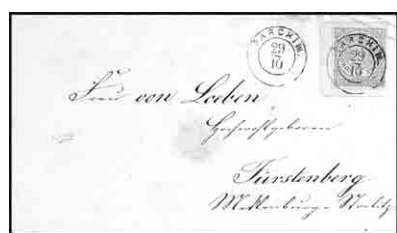 PARCHIM.
29
10
PARCHIM.
29
10
Frau von Loeben
Hochwohlgeboren
Fürstenberg
Mecklenburg-Strelitz